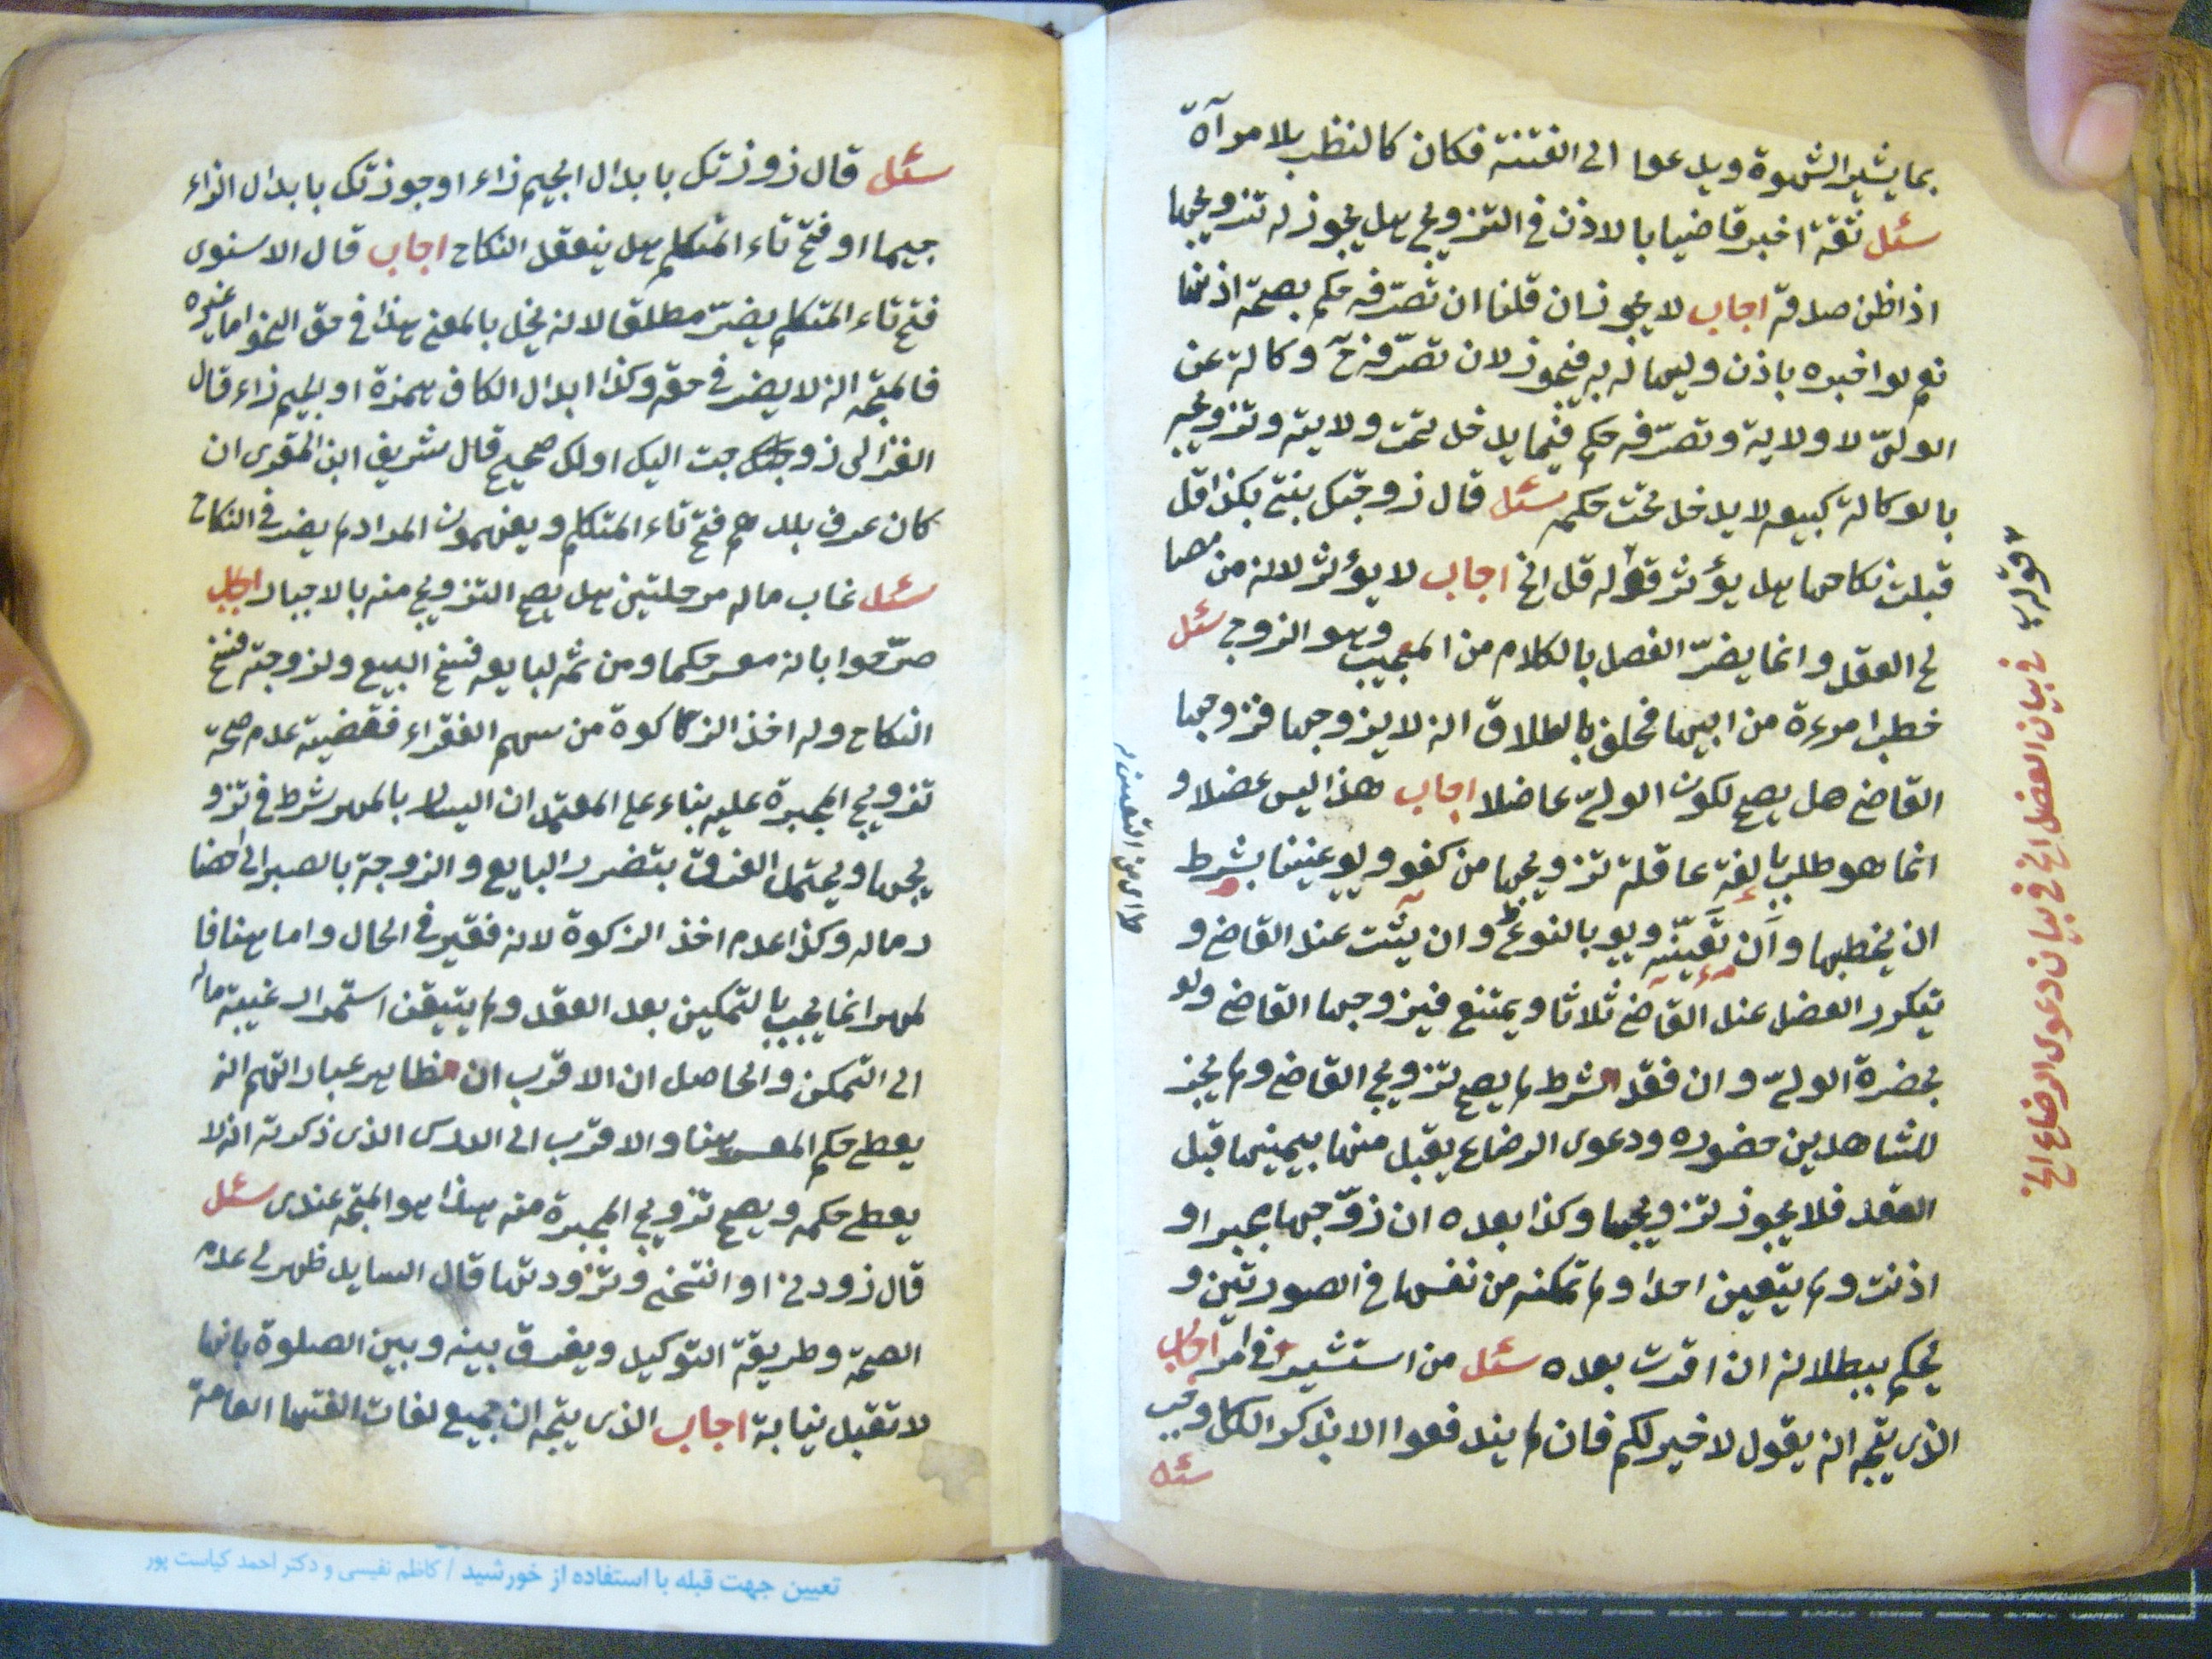 بما يثير الشهوة ويدعوا الى الفتنة فكان كالنظر بلا مرآة
سئل ثقة اخبر قاضيا بالاذن في التزويج هل يجوز له تزويجها
اذا ظن صدقه اجاب لا يجوز ان قلنا ان تصرفه حكم بصحة اذنها
نعم لو اخبره باذن وليها له به فيجوز لان تصرفه ح وكالة عن
الولي لا ولاية وتصرفه حكم فيما يدخل تحت ولايته وتزويجه
بالوكالة كبيعه لا يدخل تحت حكمه سئل قال زوجتك بنتي بكذا قل
قبلت نكاحها هل يؤثر قوله قل الخ اجاب لا يؤثر لانه من مصا
لح العقد وانما يضر الفصل بالكلام من المجيب وهو الزوج سئل
خطب امرءة من ابيها فحلف بالطلاق انه لا يزوجها فزوجها
القاضي هل يصح لكون الولي عاضلا اجاب هذا ليس عضلا و
انما هو طلب بالغة عاقلة تزويجها من كفو ولو عنينا بشرط
ان يخطبها وان تعينه ولو بالنوع وان يثبت عند القاضي و
يتكرر العضل عند القاضي ثلاثا ويمتنع فيزوجها القاضي ولو
بحضرة الولي وان فقد الشرط لم يصح تزويج القاضي ولم يجز
للشاهدين حضوره ودعوى الرضاع يقبل منها بيمينها قبل
العقد فلا يجوز تزويجها وكذا بعده ان زوجها مجبر او
اذنت ولم يتعين احدا ولم تمكنه من نفسها في الصورتين و
يحكم ببطلانه ان اقرت بعده سئل من استشير في امر اجاب
الذي يتجه انه يقول لا خير لكم فان لم يندفعوا الا بذكر الكل وجب
سئل
في بيان العضل الخ في بيان دعوى الرضاع الخ
سئل قال زوزتك بابدال الجيم زاء او جوزتك بابدال الزاء
جيما او فتح تاء المتكلم هل ينعقد النكاح اجاب قال الاسنوى
فتح تاء المتكلم يضر مطلقا لانه يخل بالمعنى هذا في حق النحوى اما غيره
فالمتجه انه لا يضر في حقه وكذا ابدال الكاف همزة او الجيم زاء قال
الغزالى زوجت اليك او لك صحيح قال شريف ابن المقرى ان
كان عرف بلدهم فتح تاء المتكلم ويفهمون المراد لم يضر في النكاح
سئل غاب ماله مرحلتين هل يصح التزويج منه بالاجبار اجاب
صرحوا بانه معسر حكما ومن ثم لبايعه فسخ البيع ولزوجته فسخ
النكاح وله اخذ الزكاكوة من سهم الفقراء فقضيته عدم صحة
تزويج المجبرة عليه بناء على المعتمد ان اليسار بالمهر شرط في تزو
يجها ويحتمل الفرق بتضرر البايع والزوجة بالصبر الى احضا
ر ماله وكذا عدم اخذ الزكوة لانه فقير في الحال واما هنا فا
لمهر انما يجب بالتمكين بعد العقد ولم يتيقن استمرار غيبة ماله
الى التمكن والحاصل ان الاقرب ان ظاهر عباراتهم انه
يعطى حكم المعسر هنا والاقرب الى المدرك الذى ذكرته انه لا
يعطى حكمه ويصح تزويج المجبرة منه هذا هو المتجه عندى سئل
قال زودنى او انتحنى وتزودتها قال السايل ظهر لى عدم
الصحة وطريقة التوكيل ويفرق بينه وبين الصلوة بانها
لا تقبل نيابة اجاب الذى يتجه ان جميع لغات الفتها العامة
تعیین جهت قبله با استفاده از خورشید / کاظم نفیسی و دکتر احمد کیاست پور